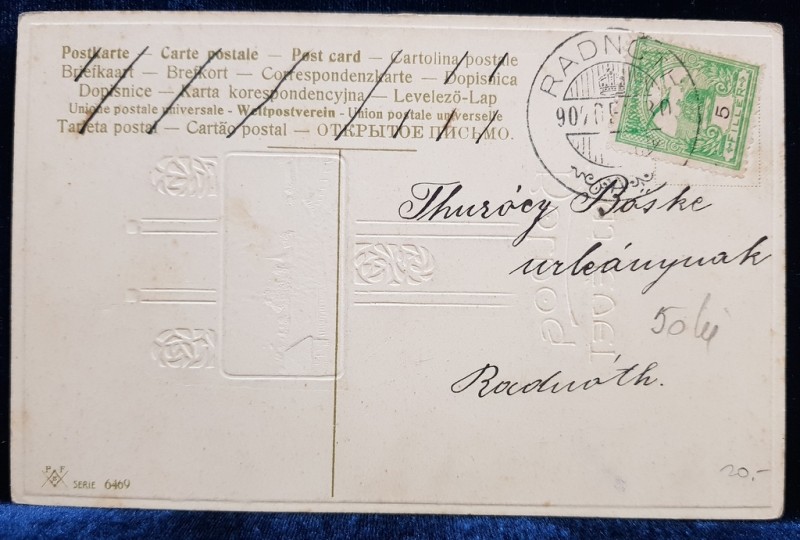 Postkarte — Carte postale — Post card — Cartolina postale
Briefkaart — Brefkort — Correspondenzkarte — Dopisnica
Dopisnice — Karta korespondencyjna — Levelező-Lap
Unione postale universale - Weltpostverein - Union postale universelle
Tarjeta postal — Cartão postal — ОТКРЫТОЕ ПИСЬМО.
RADNÓT
907
5
FILLÉR
Thuróczy Böske
urleánynak
50 lei
Radnóth.
P. F.
SERIE 6469
20.-